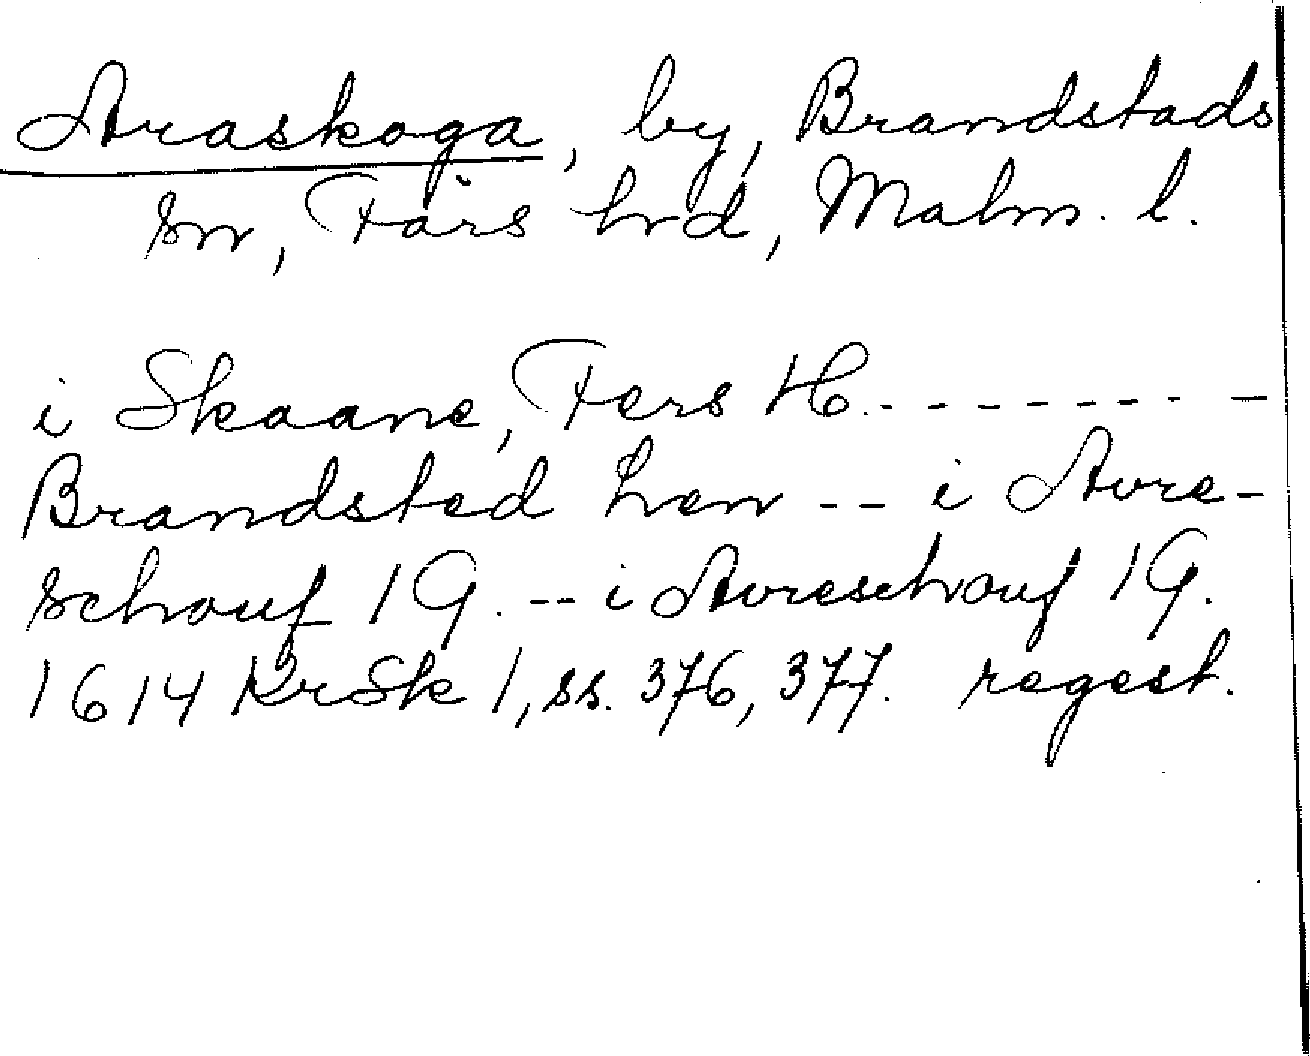 Araskoga, by, Brandstads
sn, Färs hrd, Malm. l.
i Skaane, Fers H. - - - - - - - -
Brandsted Len -- i Avre-
schouf 1 G. -- i Avreschouf 1 G.
1614 KrSk 1, ss. 376, 377. regest.